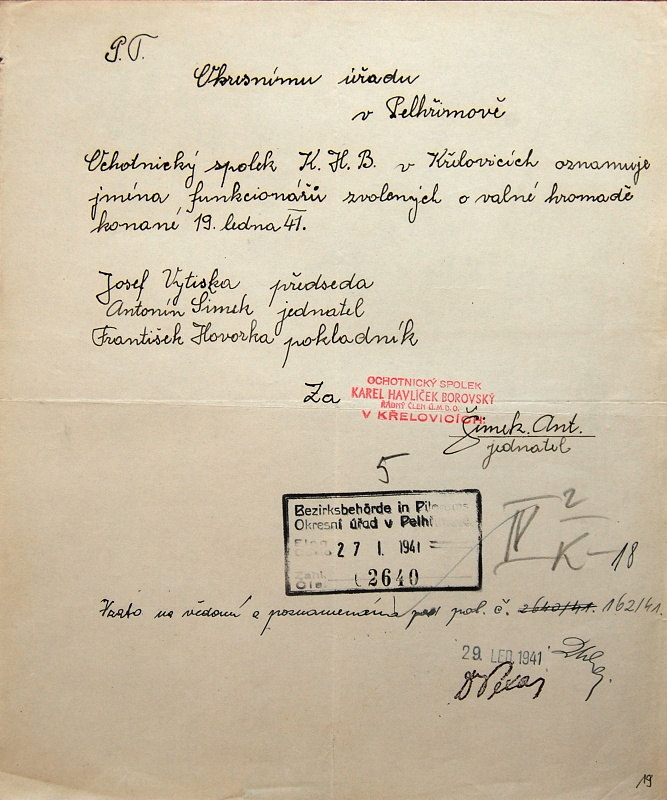 P. T.
Okresnímu úřadu
v Pelhřimově
Ochotnický spolek K. H. B. v Křelovicích oznamuje
jména funkcionářů zvolených o valné hromadě
konané 19. ledna 41.
Josef Vytiska předseda
Antonín Šimek jednatel
František Hovorka pokladník
Za
OCHOTNICKÝ SPOLEK
KAREL HAVLÍČEK BOROVSKÝ
ŘÁDNÝ ČLEN Ú.M.D.O.
V KŘELOVICÍCH
Šimek. Ant.
jednatel
5
Bezirksbehörde in
Okresní úřad v
27 I. 1941
2640
IV 2
K - 18
Vzato na vědomí a poznamenáno pod pol. č. 2640/41. 162/41.
29. LED. 1941
19